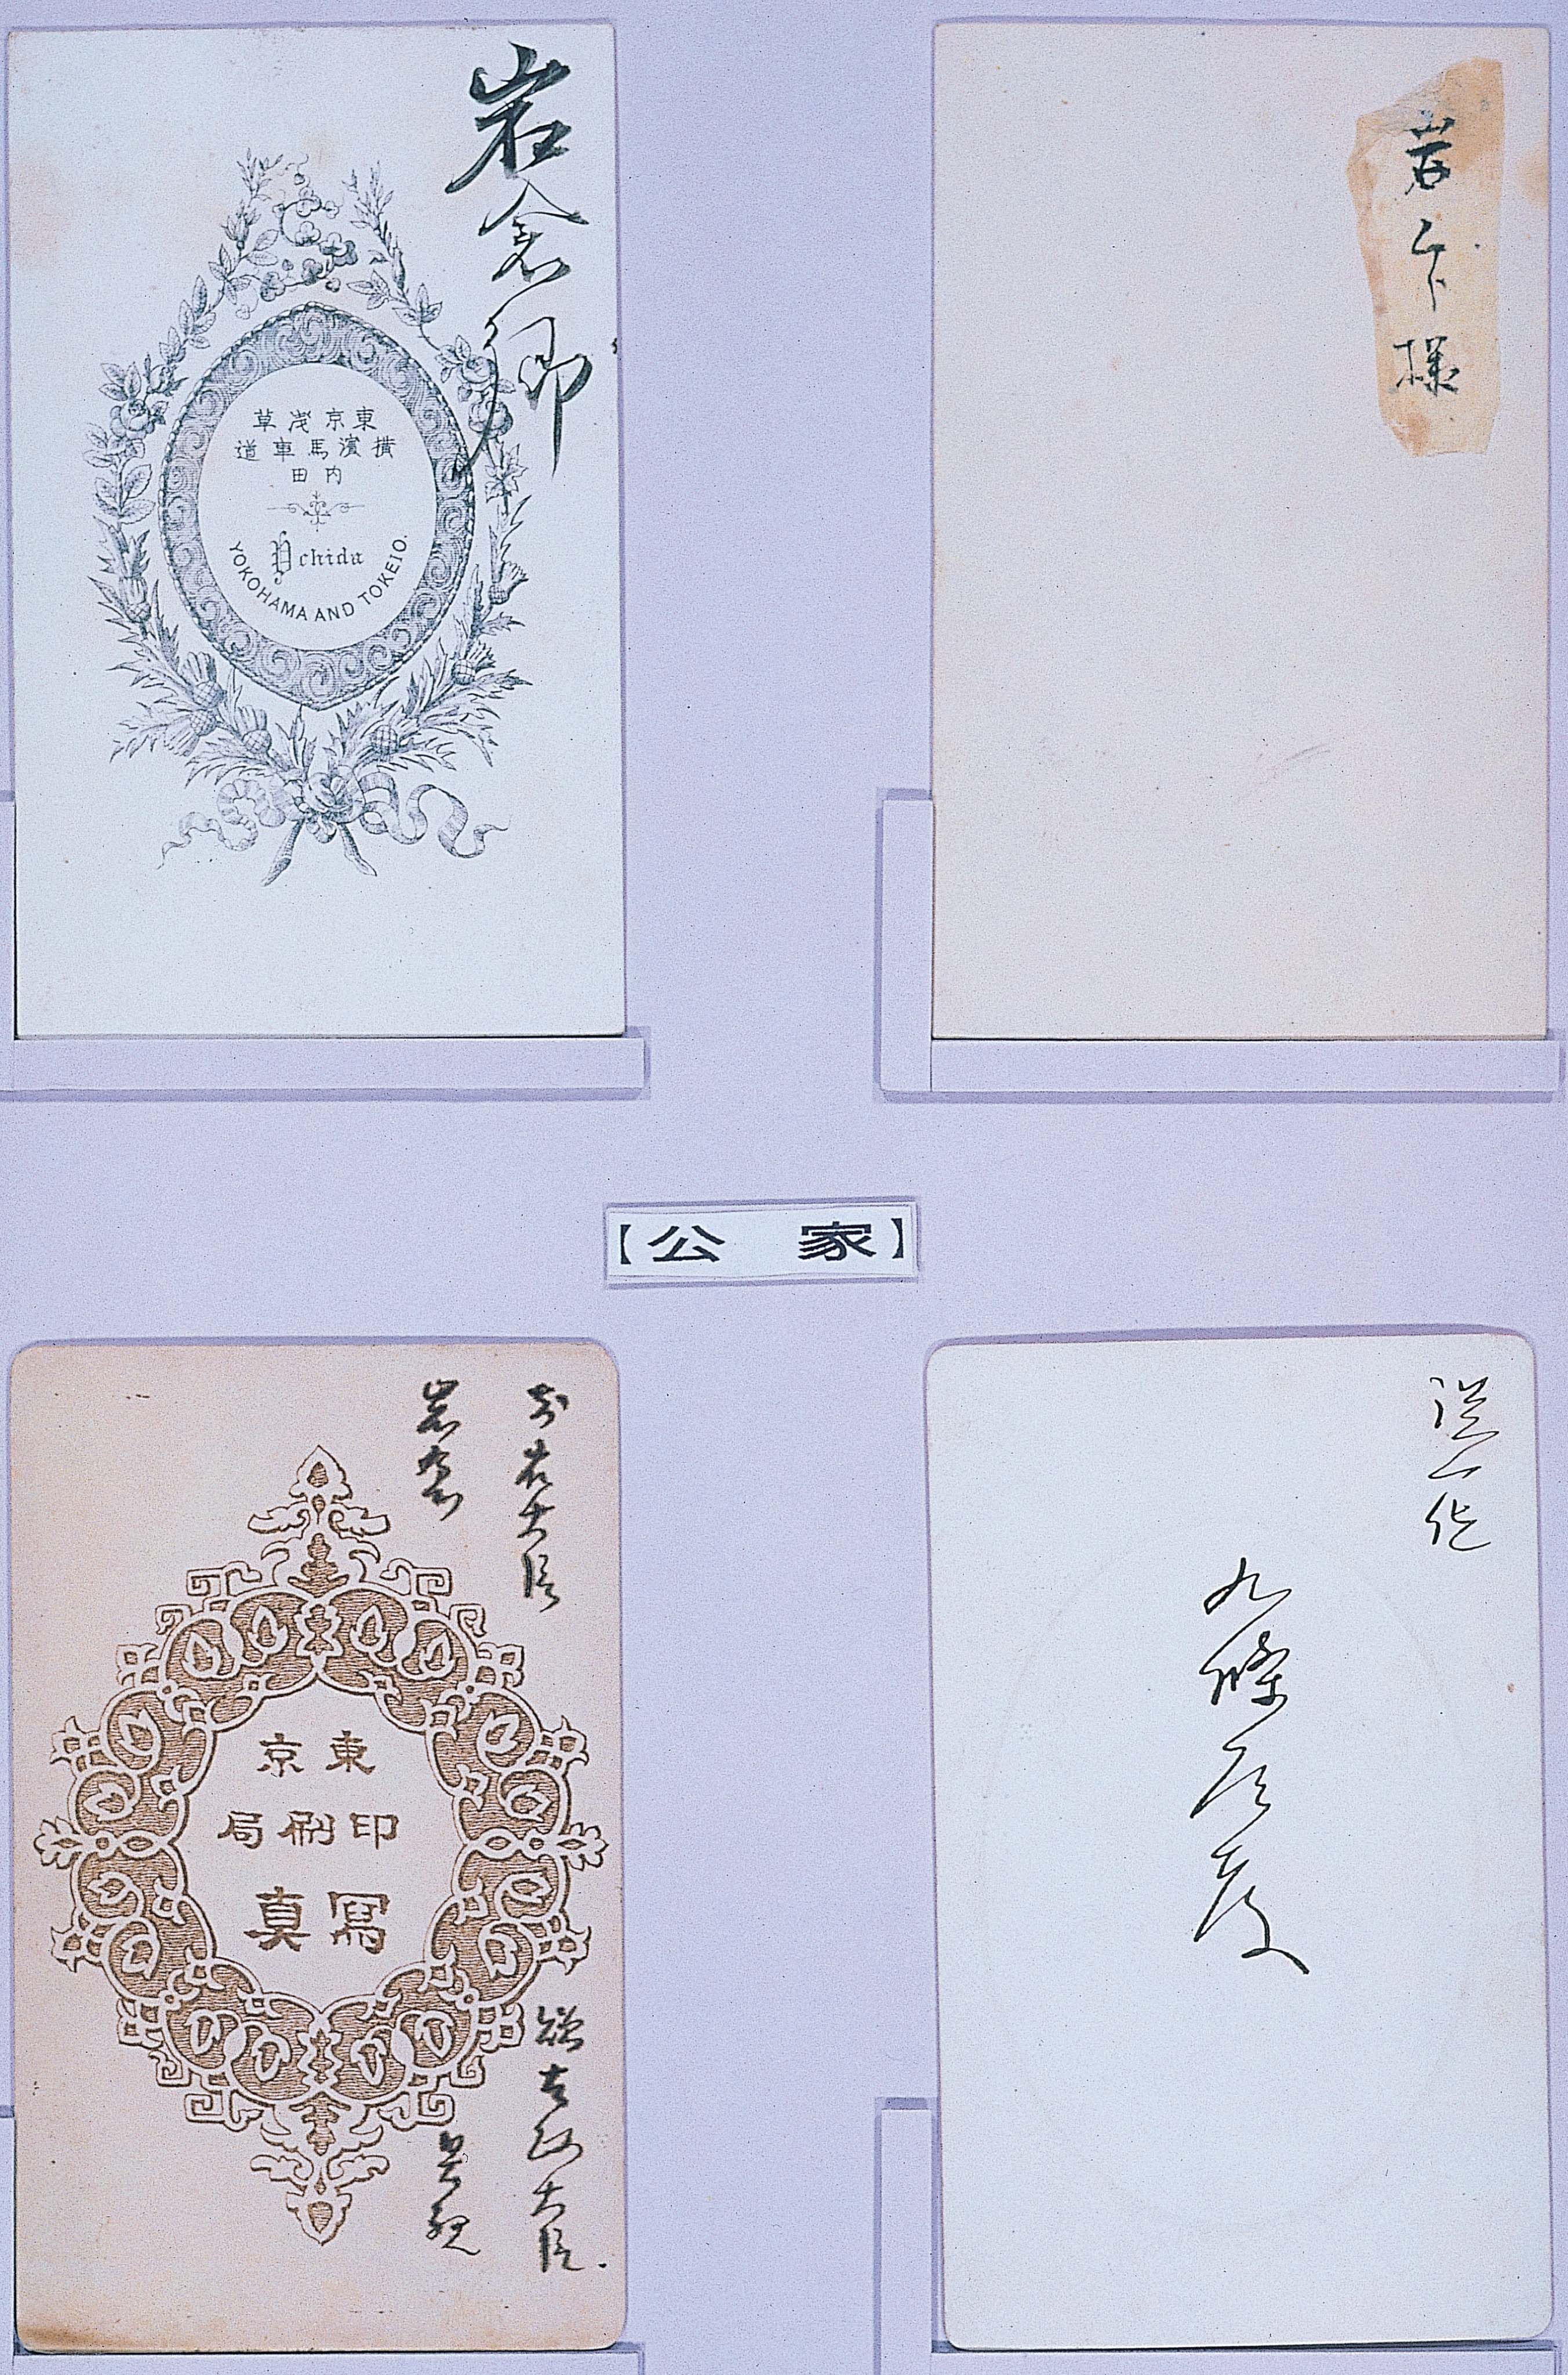 岩倉卿
東京淺草
横濱馬車道
内田
Uchida
YOKOHAMA AND TOKEIO.
岩 様
【公 家】
前右大臣
岩倉
東京
印刷局
寫真
贈太政大臣
具視
従一位
九條